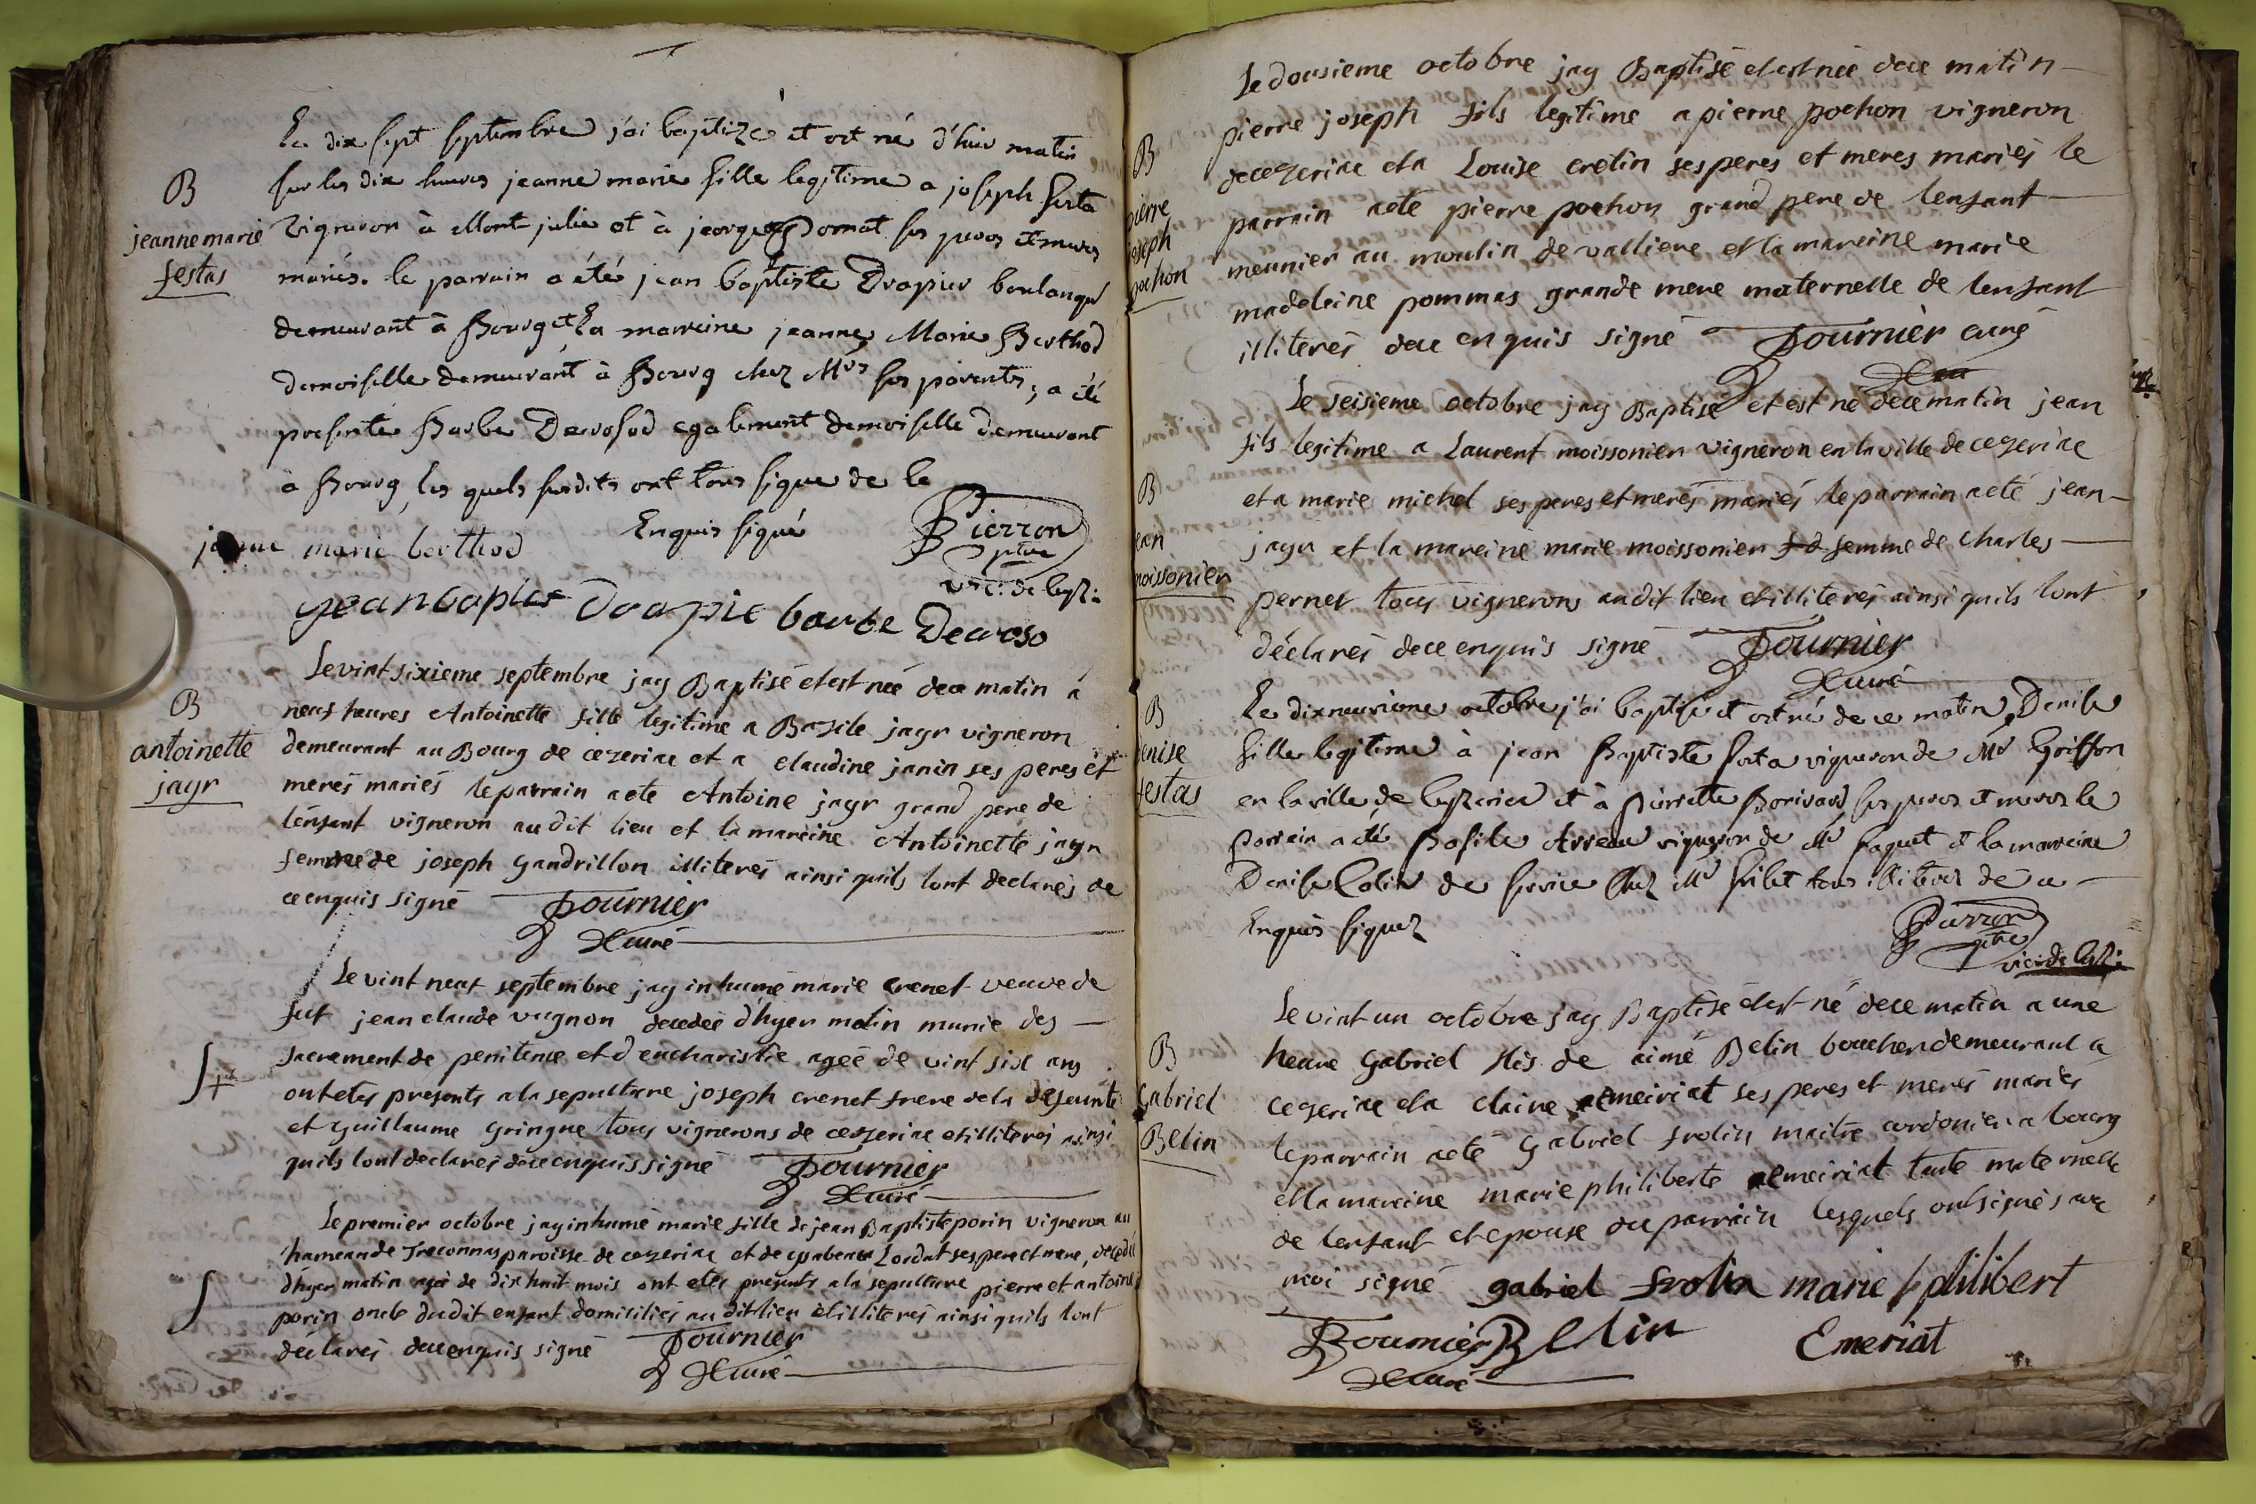 Le dix sept septembre j'ai baptizé et est né d'hier matin
sur les dix heures jeanne marie fille legitime a joseph festa
vigneron à Mont julie et à jeorge Domat ses peres et meres
mariés. le parrain a été jean baptiste Drapier boulanger
demeurant à Bourg et la marreine jeanne Marie Berthod
demoiselle demeurant à Bourg chez Mrs ses parents, a été
presente Barbe Decroso egalement demoiselle demeurant
à Bourg, les quels susdits ont tous signe de le
Enquis signé Pierron
ptre
vic: de
B
jeanne marie
festas
jeanne marie berthod
jean baptiste Drapie barbe Decroso
Le vint sixieme septembre jay Baptisé et est née de ce matin à
neuf heures Antoinette fille legitime a Basile jayr vigneron
demeurant au Bourg de cezeriac et a claudine janin ses peres et
meres mariés le parrain a eté Antoine jayr grand pere de
lenfant vigneron au dit lieu et la mareine Antoinette jayr
femme de joseph Gandrillon illiterés ainsi quils lont declarés de
ce enquis signé Fournier
curé
B
antoinette
jayr
Le vint neuf septembre jay inhumé marie crenet veuve de
fut jean claude vugnon decedée d'hyer matin munie des
sacrement de penitence et d'eucharistie ageé de vint six ans
ont etes presents a la sepulture joseph crenet frere de la defeunte
et guillaume gringne tous vignerons de cezeriac et illiterés ainsi
quils lont declarés de ce enquis signé Fournier
curé
Le premier octobre jay inhumé marie fille de jean Baptiste porin vigneron au
hameau de Treconnas paroisse de cezeriac et de ysabeau Lordat ses pere et mere, decedée
d'hyer matin ageé de dix huit mois ont etes presents a la sepulture pierre et antoine
porin oncle du dit enfant domiciliés au dit lieu et illiterés ainsi quils lont
déclarés de ce enquis signé Fournier
curé
Le dousieme octobre jay Baptisé et est née de ce matin
pierre joseph fils legitime a pierre pochon vigneron
de cezeriac et a Louise cretin ses peres et meres mariés le
parrain a eté pierre pochon grand pere de lenfant
meunier au moulin de valliere et la mareine marie
madeleine pommas grande mere maternelle de lenfant
illiterés de ce enquis signé Fournier curé
B
pierre
joseph
pochon
Le seisieme octobre jay Baptisé et est né de ce matin jean
fils legitime a Laurent moissonier vigneron en la ville de cezeriac
et a marie michel ses peres et meres mariés le parrain a eté jean
jayr et la mareine marie moissonier femme de charles
pernet tous vignerons audit lieu et illiterés ainsi quils lont
déclarés de ce enquis signé Fournier
curé
B
jean
moissonier
Le dixneuvieme octobre j'ai baptisé et est né de ce matin Denise
fille legitime à jean Baptiste festa vigneron de Mr Griffon
en la ville de et à Pierrette Borivard ses peres et meres le
parrain a été Basile vigneron de Mr paquet et la marreine
Denise Colin de service chez Mr tous illiterés de ce
Enquis signez Pierron
ptre
vic: de
B
denise
festas
Le vint un octobre jay Baptisé et est né de ce matin a une
heure Gabriel fils de aimé Belin boucher demeurant a
cezeriac et a claire emeiriat ses peres et meres mariés
le parrain a eté Gabriel frolin maitre cordonier a bourg
et la mareine marie philiberte emeiriat tante maternelle
de lenfant et epouse du parrain lesquels ont signés avec
moi signé gabriel frolin marie philibert
Fournier Belin Emeriat
curé
B
Gabriel
Belin